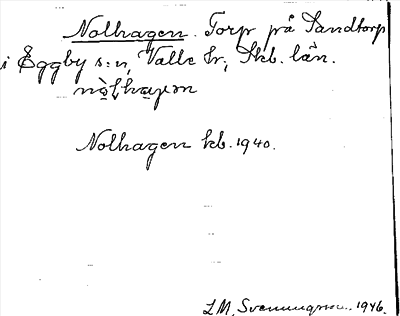 Nolhagen. Torp på Sandtorp
i Eggby s:n, Valle hr, Skb. län.
Nolhagen kb. 1940.
L M, Svenungsson. 1946.